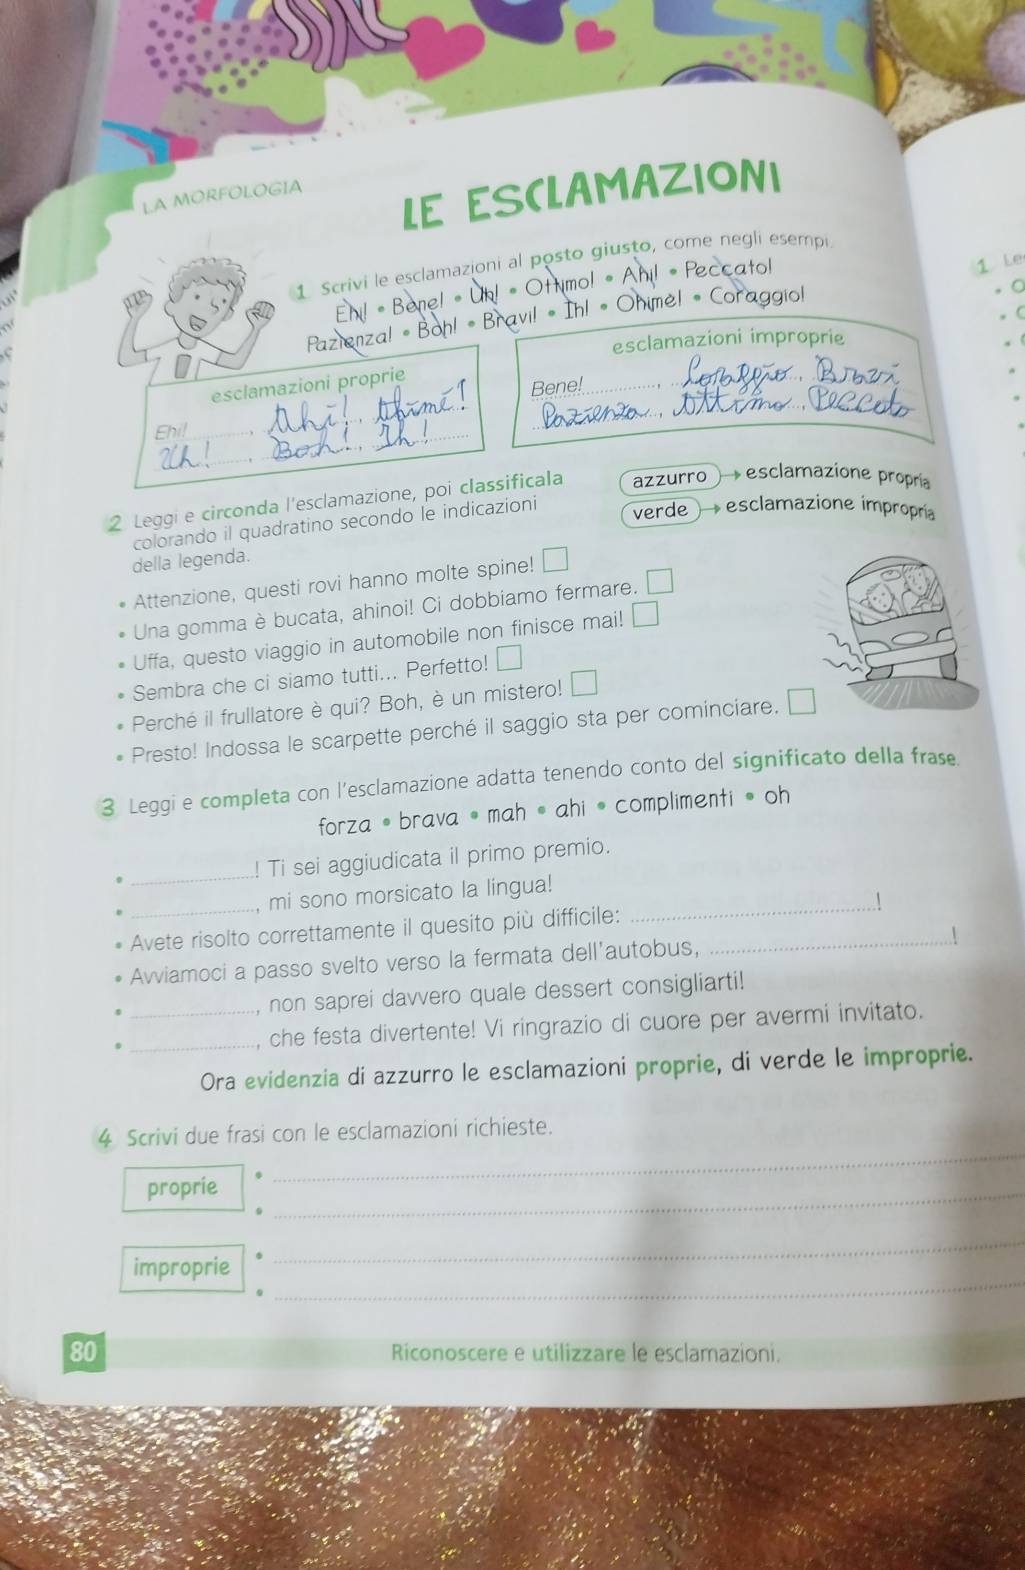 LA MORFOLOGIA
LE ESCLAMAZIONI
1 Scrivi le esclamazioni al posto giusto, come negli esempi.
Ehi! • Bene! • Uh! • Ottimo! • Ahi! • Peccato!
Pazienza! • Boh! • Bravi! • Ih! • Ohimè! • Coraggio!
esclamazioni proprie
Ehi!, Ahi!, Ohimé!
Uh!, Boh!, Ih!
esclamazioni improprie
Bene!, Coraggio, Bravi
Pazienza, Ottimo, Peccato
2 Leggi e circonda l'esclamazione, poi classificala
colorando il quadratino secondo le indicazioni
della legenda.
azzurro → esclamazione propria
verde → esclamazione impropria
• Attenzione, questi rovi hanno molte spine!
• Una gomma è bucata, ahinoi! Ci dobbiamo fermare.
• Uffa, questo viaggio in automobile non finisce mai!
• Sembra che ci siamo tutti... Perfetto!
• Perché il frullatore è qui? Boh, è un mistero!
• Presto! Indossa le scarpette perché il saggio sta per cominciare.
3 Leggi e completa con l'esclamazione adatta tenendo conto del significato della frase.
forza • brava • mah • ahi • complimenti • oh
• ! Ti sei aggiudicata il primo premio.
• , mi sono morsicato la lingua!
• Avete risolto correttamente il quesito più difficile: !
• Avviamoci a passo svelto verso la fermata dell'autobus, !
• , non saprei davvero quale dessert consigliarti!
• , che festa divertente! Vi ringrazio di cuore per avermi invitato.
Ora evidenzia di azzurro le esclamazioni proprie, di verde le improprie.
4 Scrivi due frasi con le esclamazioni richieste.
proprie
improprie
80
Riconoscere e utilizzare le esclamazioni.
1 Le